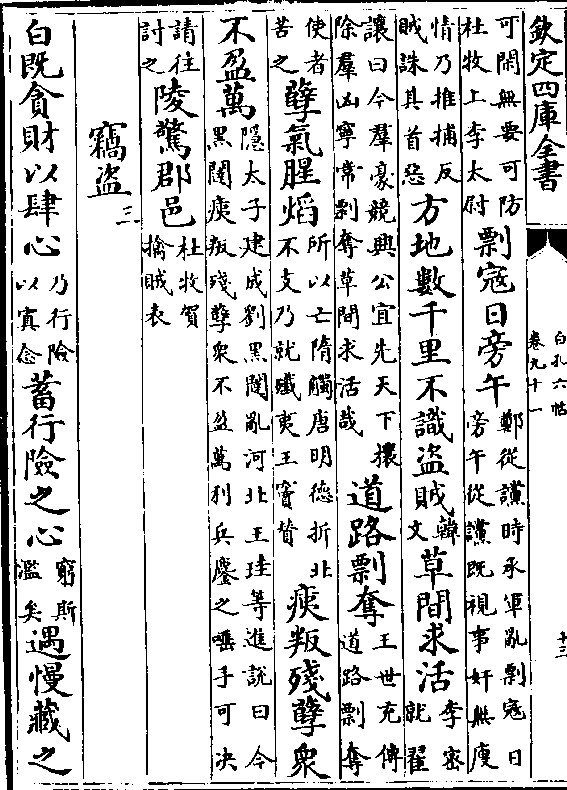 欽定四庫全書
白孔六帖
卷九十一
十三
可閑無要可防
杜牧上李太尉
剽寇日旁午
鄭從讜時承軍亂剽寇日
旁午從讜既視事奸無廋
情乃推捕反
賊誅其首惡
方地數千里不識盗賊
韓
文
草間求活
李密
就翟
讓曰今羣豪競興公宜先天下攘
除羣凶寧常剽奪草間求活哉
道路剽奪
王世充傳
道路剽奪
使者
苦之
孽氣腥焰
所以亡隋觸唐明德折北
不支乃就殲夷王竇贊
瘐叛殘孽衆
不盈萬
隱太子建成劉黑闥亂河北王珪等進說曰今
黑闥瘐叛殘孽衆不盈萬利兵鏖之唾手可決
請往
討之
陵驚郡邑
杜牧賀
擒賊表
竊盗
三
白既貪財以肆心
乃行險
以寘念
蓄行險之心
窮斯
濫矣
遇慢藏之